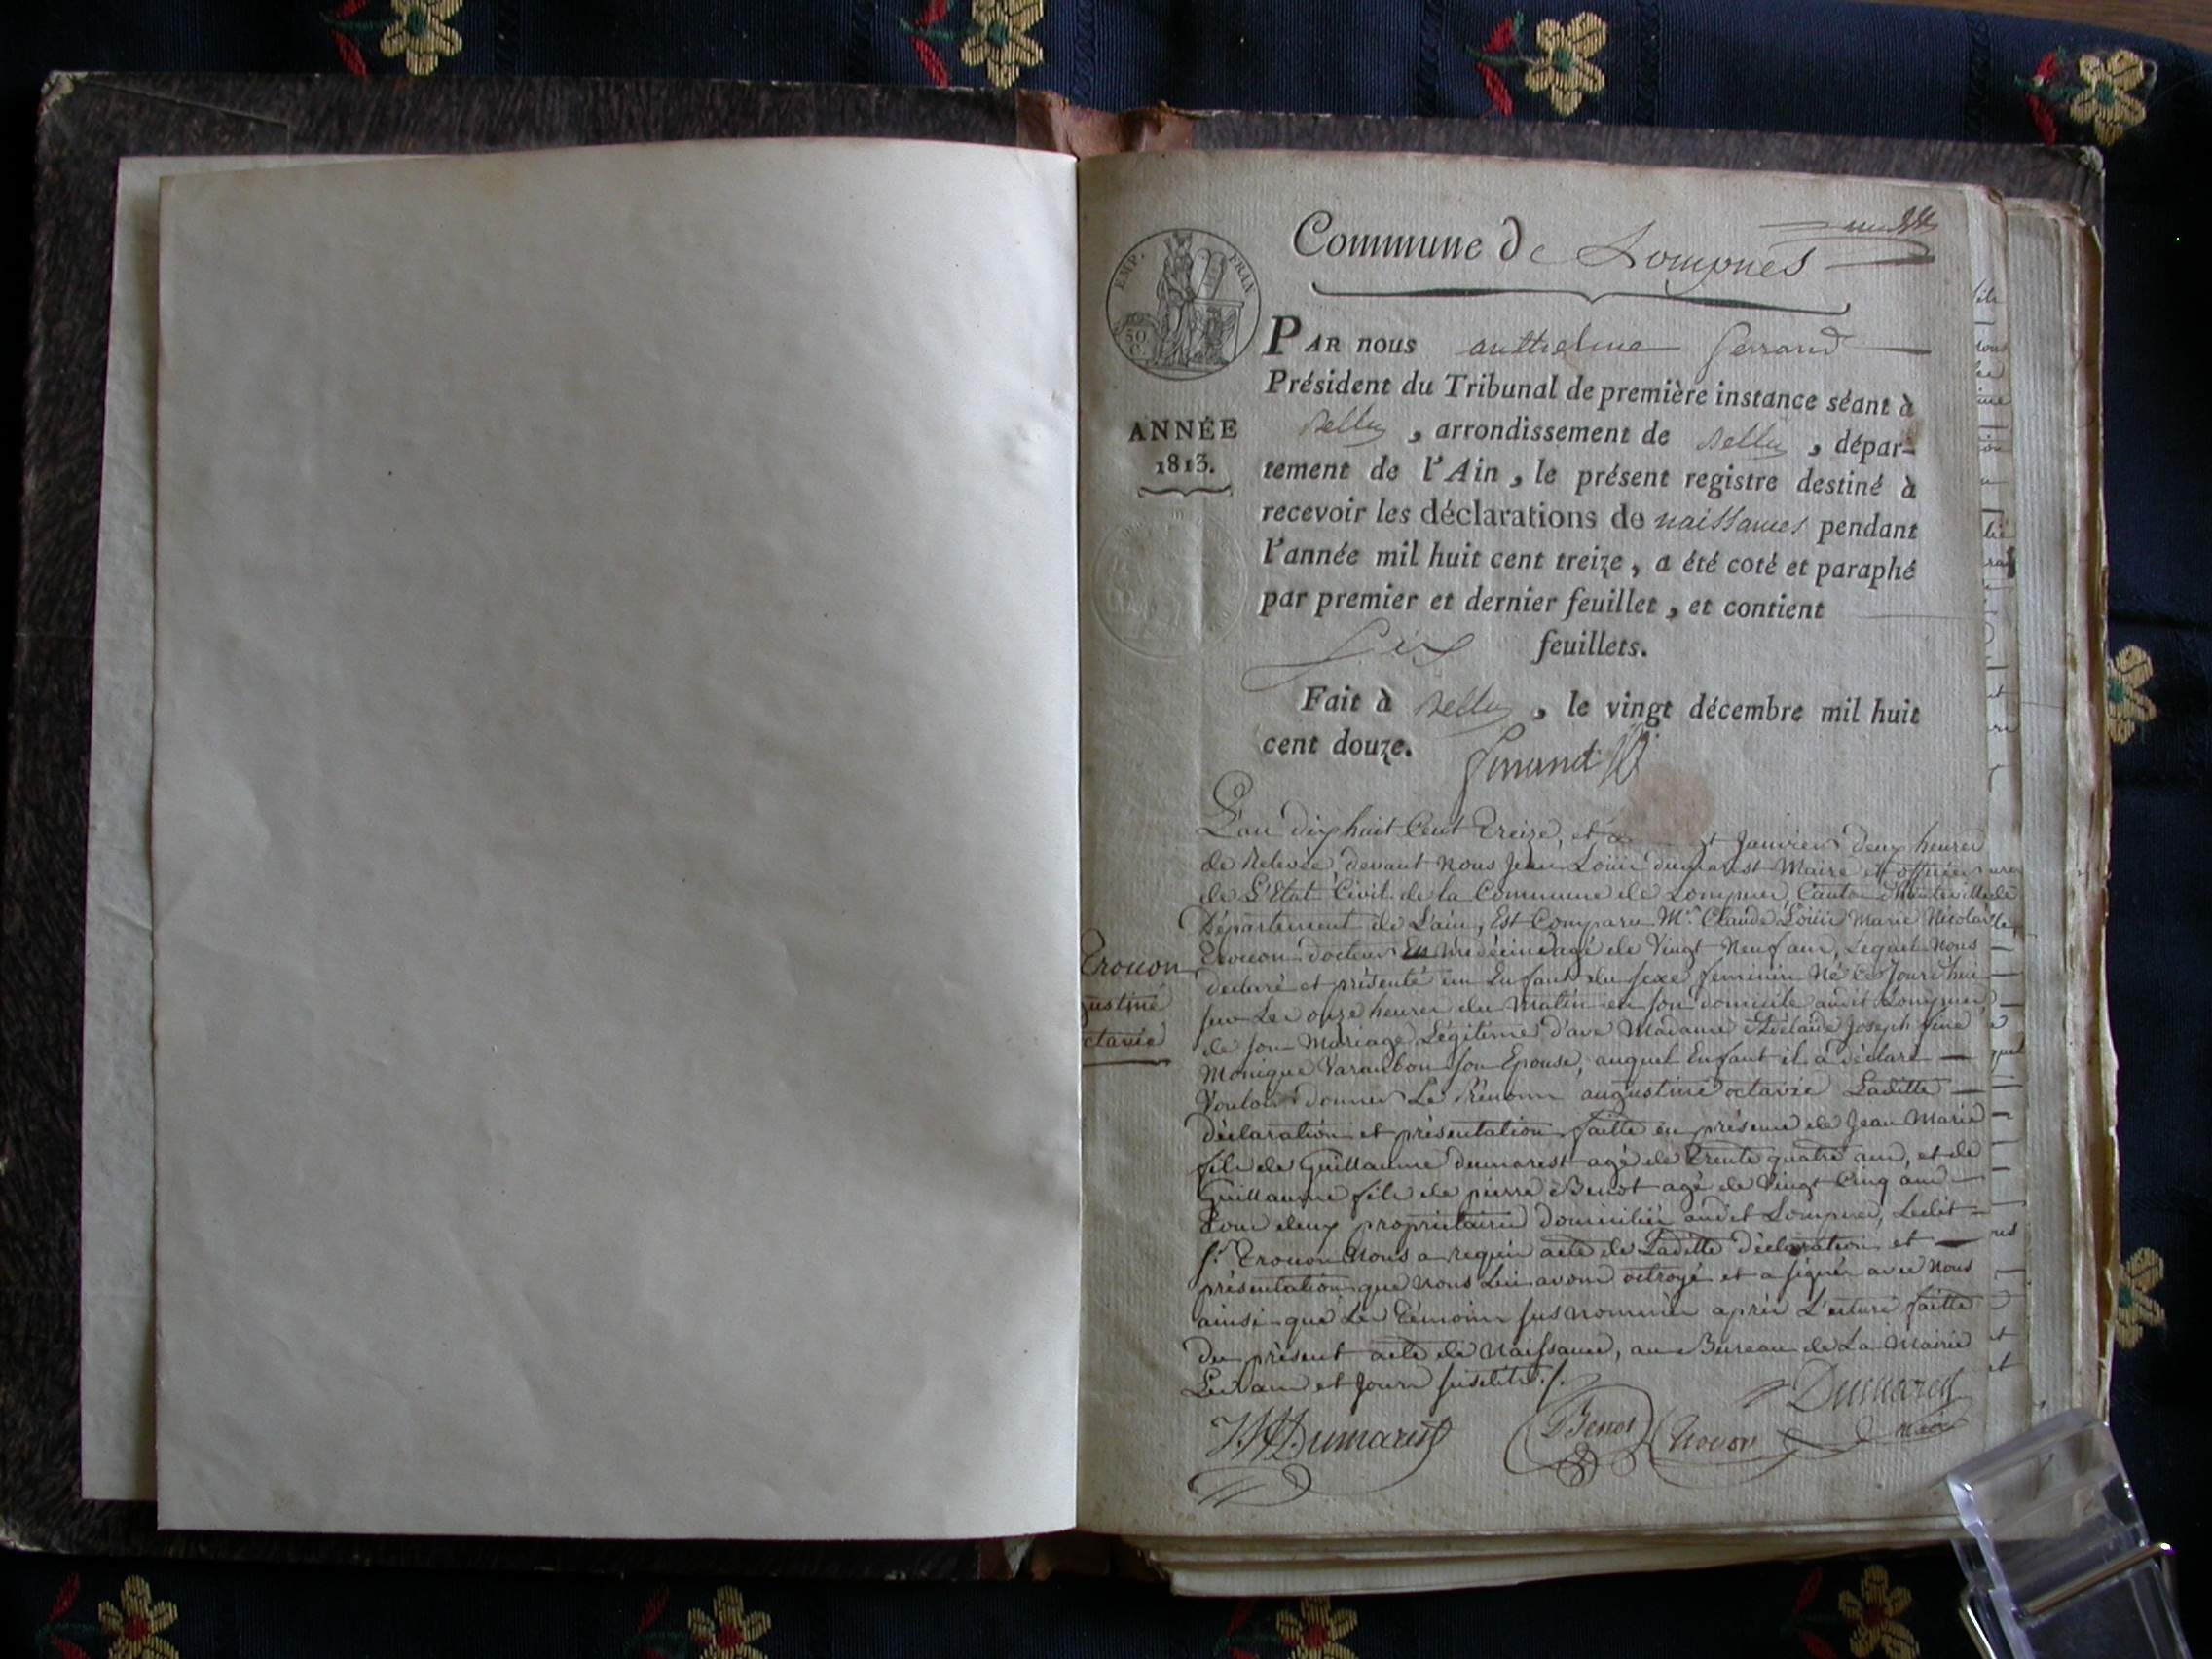 Commune de Lompnes
EMP. FRAN
50
C.
PAR nous anthelme Gerrand
Président du Tribunal de première instance séant à
Belley, arrondissement de Belley, dépar-
ANNÉE
1813.
tement de l'Ain, le présent registre destiné à
recevoir les déclarations de naissances pendant
l'année mil huit cent treize, a été coté et paraphé
par premier et dernier feuillet, et contient
six feuillets.
Fait à Belley, le vingt décembre mil huit
cent douze.
L'an dix huit Cent Treize, et janvier deux heures
de Relevée, devant Nous Jean Louis dumarest Maire et officier
de L'Etat Civil de la Commune de Lompnes, Canton d'hauteville
Département de L'ain, Est Comparu Mr. Claude Louis Marie Nicolas
Trouon
gustine
ctavie
Trouon docteur En médecine agé de Vingt Neuf ans, Lequel Nous
declaré et présenté un Enfant du sexe feminin Né Ce Jourd'hui
sur Les onze heures du Matin en son domicile audit Lompnes,
de son Mariage Légitime d'avec Madame Adélaïde Joseph fine
Monique Varambon son Epouse, auquel Enfant il a déclaré
Vouloir donner Le Prénom augustine octavie Laditte
déclaration et présentation faitte en présence de Jean Marie
fils de Guillaume Dumarest agé de Trente quatre ans, et de
Guillaume fils de pierre Benot agé de Vingt Cinq ans
Tous deux propriétaires Domiciliés audit Lompnes, Ledit
Sr. Trouon Nous a requis acte de Laditte Déclaration et
présentation que Nous Lui avons octroyé et a signé avec Nous
ainsi que Les Témoins sus nommés après L'ecture faitte
du présent acte de Naissance, au Bureau de La Mairie
Les an et Jour susdits ./.
Dumarest
J.M. Dumarest Benot Trouon Maire